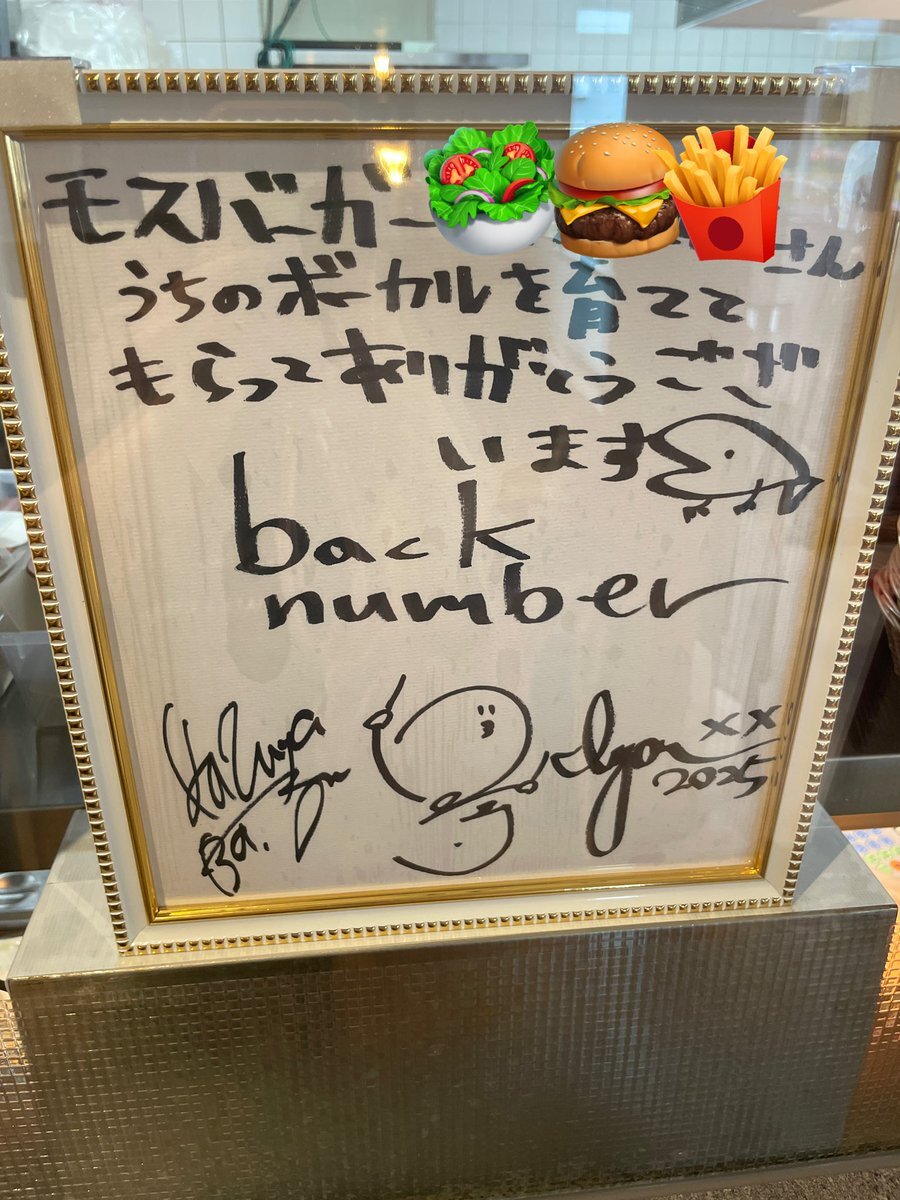 モスバーガー さん
うちのボーカルを育てて
もらってありがとうござ
います
back
number
Kazuya
Ba.
××
2025